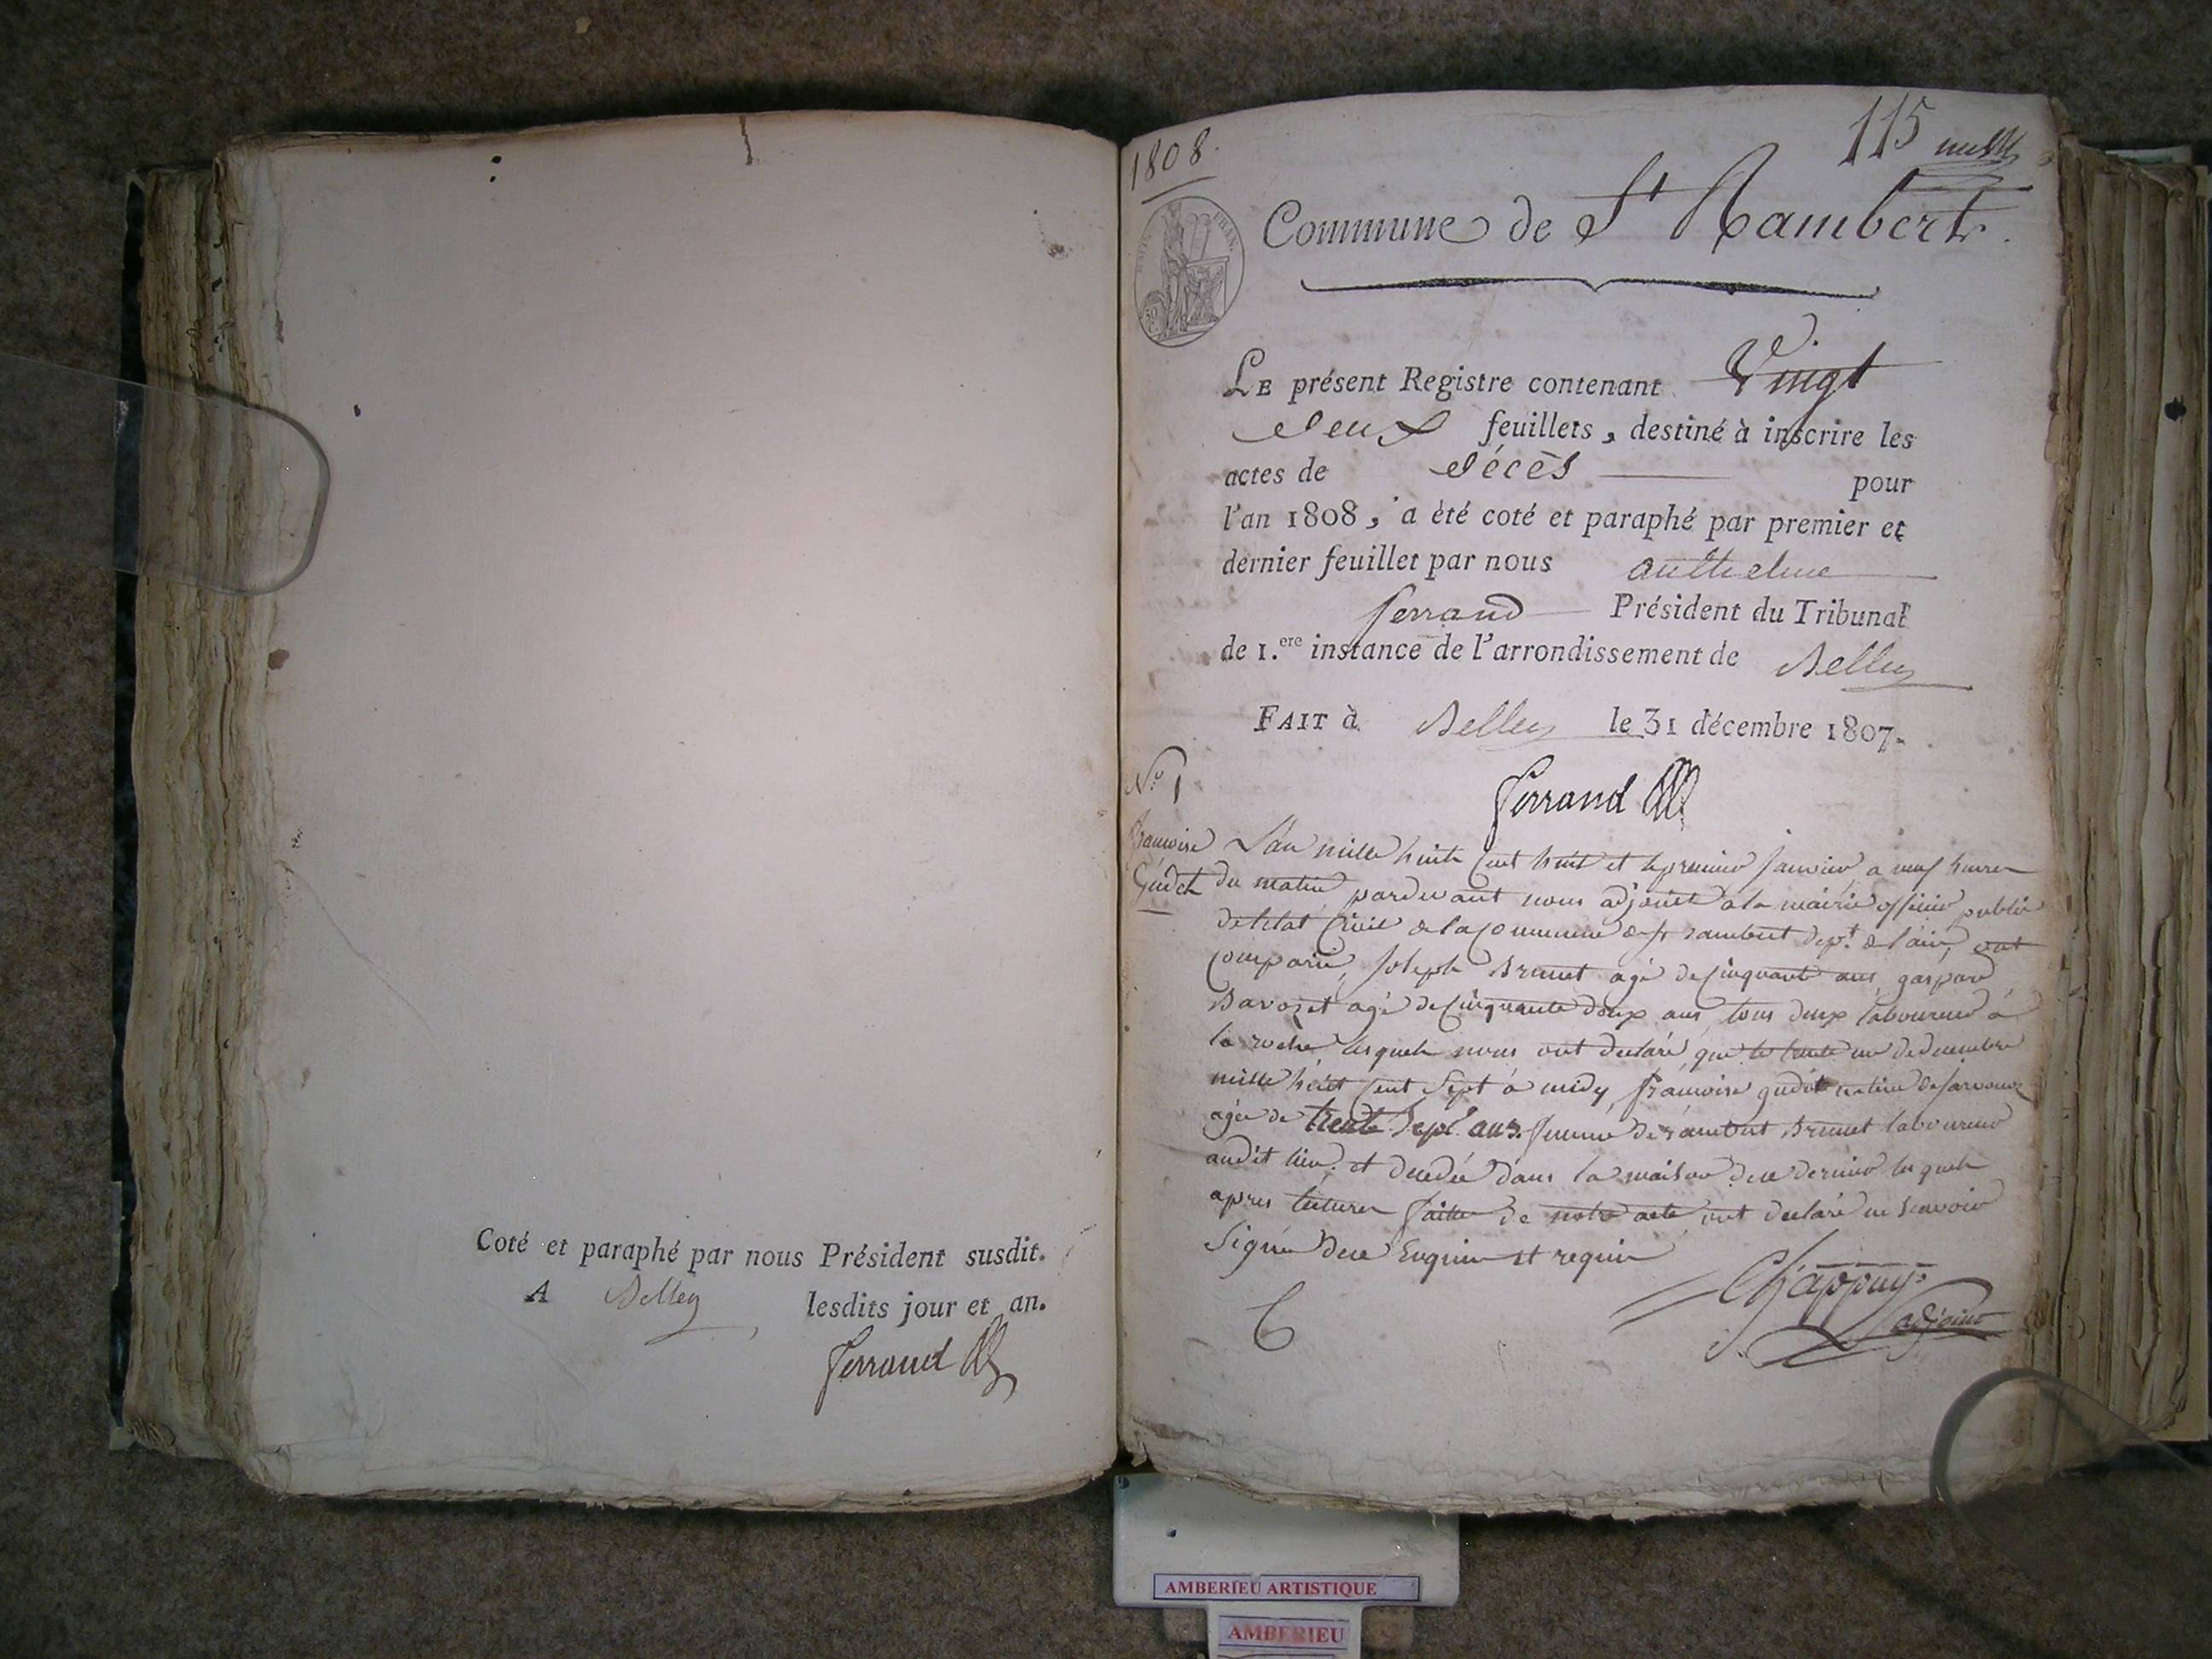 Coté et paraphé par nous Président susdit.
A Belley lesdits jour et an.
Ferrand
1808.
115
FRAN.
Commune de St Rambert
LE présent Registre contenant Vingt
deux feuillets, destiné à inscrire les
actes de décès pour
l'an 1808, a été coté et paraphé par premier et
dernier feuillet par nous anthelme
ferrand Président du Tribunal
de 1.ere instance de l'arrondissement de Belley
FAIT à Belley le 31 décembre 1807.
Ferrand
No 1
françoise
Gudet
L'an mille huit cent huit et le premier janvier a neuf heures
du matin pardevant nous adjoint a la mairie officier public
de l'état Civil de la commune de st rambert dept. de l'ain, ont
comparu, Joseph Brunet agé de cinquante ans, gaspard
Savoset agé de cinquante deux ans tous deux laboureur à
la roche, lesquels nous ont declaré que le trente un decembre
mille huit cent sept à midy, françoise gudet native de
agée de trente sept ans. femme de rambert Brunet laboureur
audit lieu. et decedée dans la maison de ce dernier lesquels
apres lecture faitte de notre acte ont declaré ne scavoir
signé de ce enquis et requis
Chappuy
adjoint
AMBERIEU ARTISTIQUE
AMBERIEU